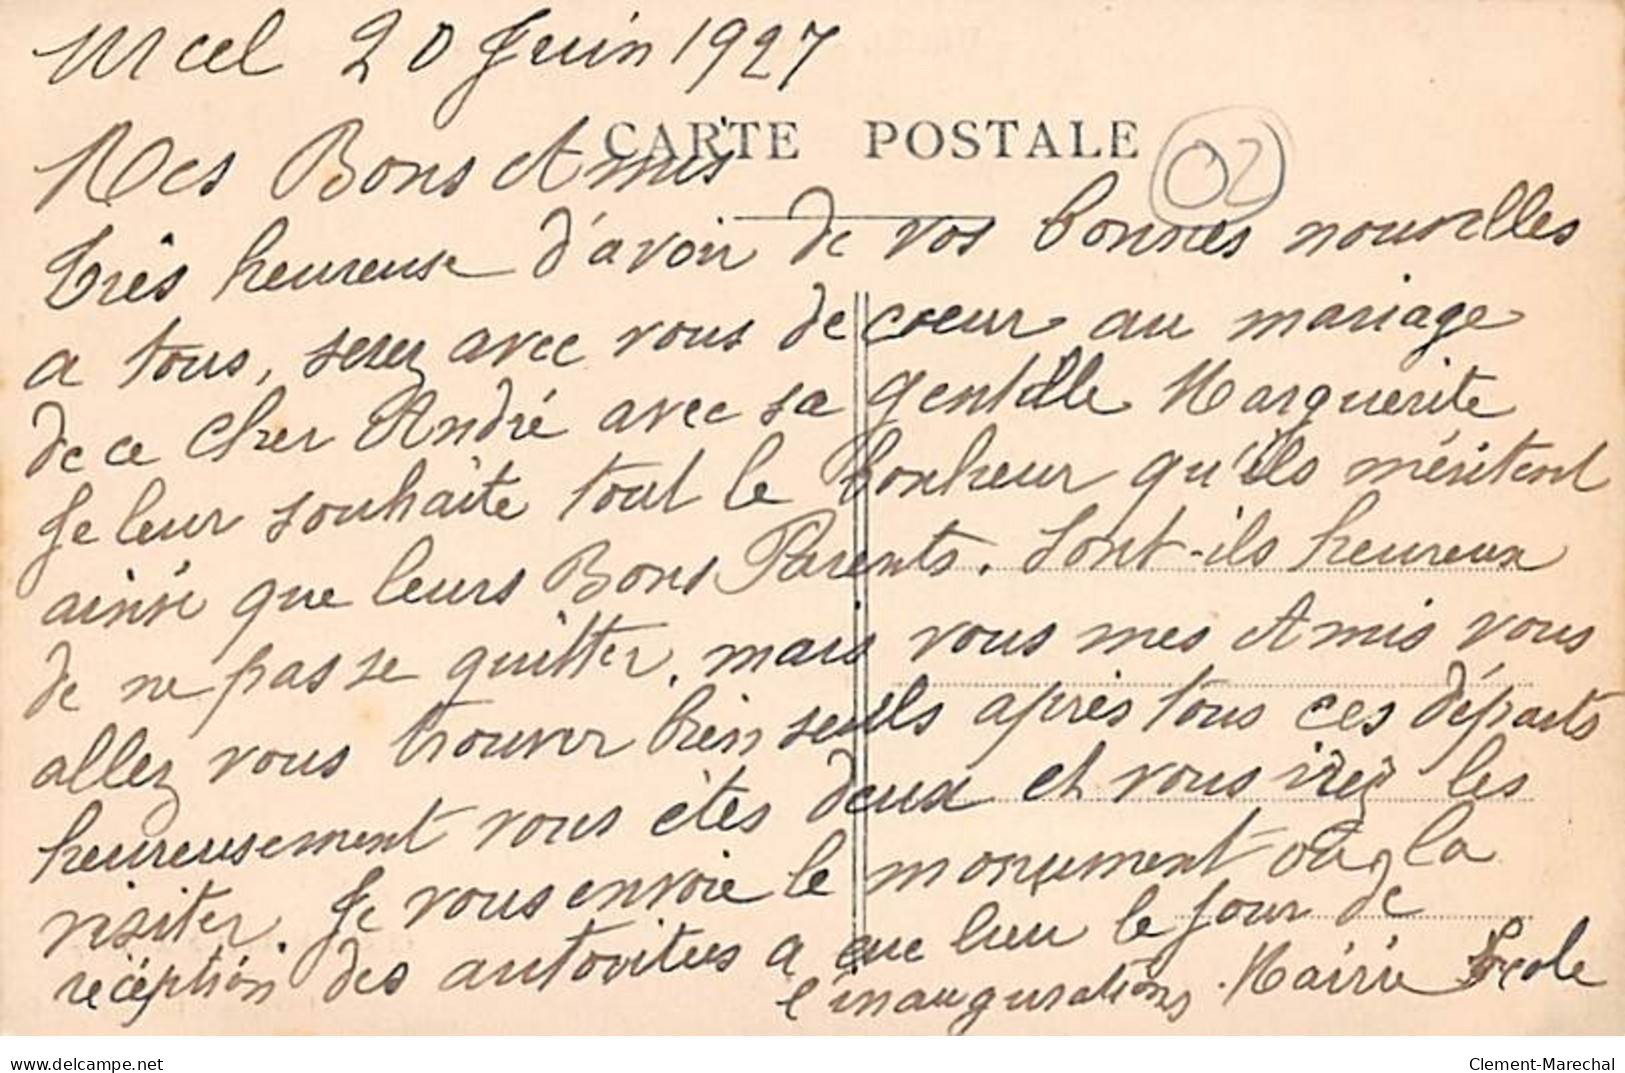 Urcel 20 Juin 1927
CARTE POSTALE
02
Mes Bons Amis
très heureuse d'avoir de vos bonnes nouvelles
a tous, serez avec vous de coeur au mariage
de ce cher André avec sa gentille Marguerite
Je leur souhaite tout le bonheur qu'ils méritent
ainsi que leurs Bons Parents. Sont-ils heureux
de ne pas se quitter, mais vous mes Amis vous
allez vous trouver bien seuls après tous ces départs
heureusement vous êtes deux et vous irez les
visiter. Je vous envoie le monument où la
réception des autoritées a eue lieu le jour de
l'inaugurations. Mairie Ecole
www.delcampe.net
Clement-Marechal